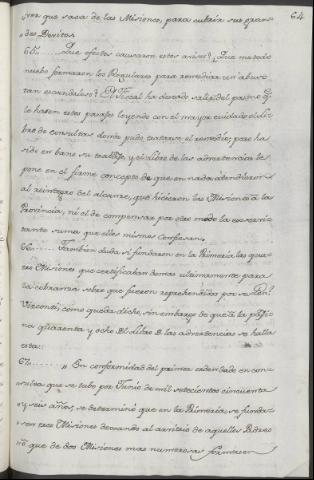 64
que sacar de las Misiones, para cubrir sus
des Devitos.
65. Que efectos causaron estos avisos? Que metodo
nuebo formaron los Regulares para remediar un abuso
tan escandaloso? El Fiscal ha deseado salir del paso
le hacen estos parajes leyendo con el mayor cuidado el li-
bro de consultas donde pudo tratarse el remedio; pero ha
sido en bano su trabajo, y el libro de las advertencias le
pone en el firme concepto de que en nada atendieron
al reintegro del alcanze, que hicieron las Misiones à la
Provincia, ni el de compensar por otro modo la
tante suma que ellos mismos confiesan.
66. Tambien duda si fundaron en la Pimeria las qua-
tro Misiones que certificaban domas ultimamente para
la cobranza sobre que fueron reprehendidos por su
Visconti, como queda dicho, sin embargo de que à la pagi-
na quarenta y ocho del Libro de las advertencias se halla
esta:
67. „ En conformidad del primer ordenado en con-
sulta que se tubo por Junio de mil setecientos cincuenta
y seis años, se determinò que en la Pimeria se funda-
sen tres Misiones dexando al arvitrio de aquellos Padres
que de dos Misiones mas numerosas formasen